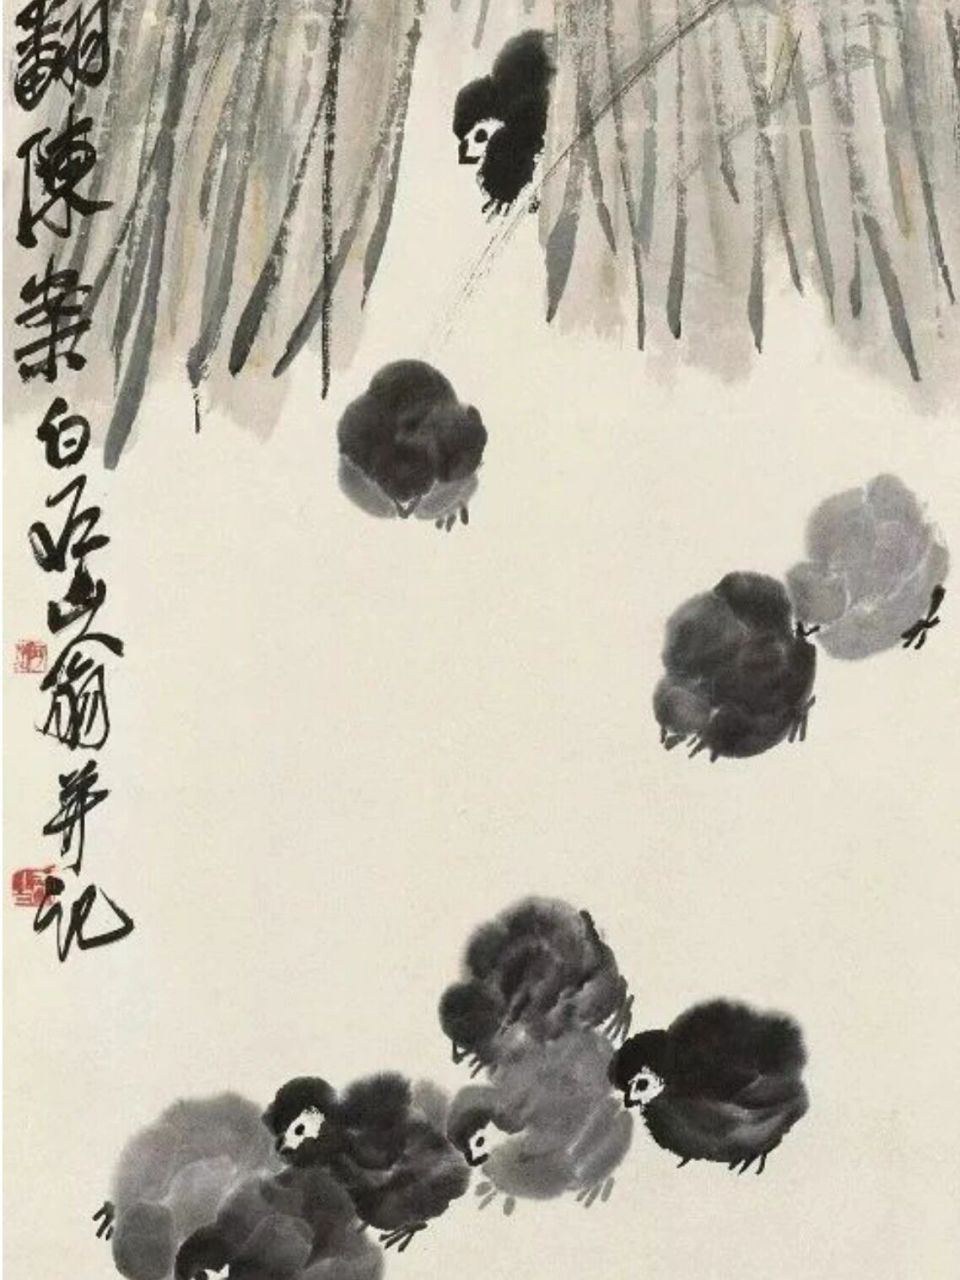 翻陳案白石山翁並記